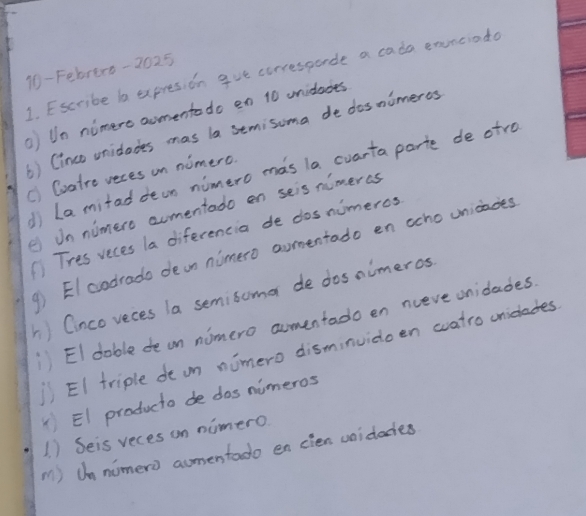 10-Febrero-2025
1. Escribe la expresión que corresponde a cada enunciado
a) Un número aumentado en 10 unidades
b) Cinco unidades mas la semisuma de dos números
c) Cuatro veces un número.
d) La mitad de un número más la cuarta parte de otro
e) Un número aumentado en seis números
f) Tres veces la diferencia de dos números.
g) El cuadrado de un número aumentado en ocho unidades
h) Cinco veces la semisuma de dos números.
i) El doble de un número aumentado en nueve unidades.
j) El triple de un número disminuido en cuatro unidades
k) El producto de dos números
l) Seis veces un número.
m) Un número aumentado en cien unidades